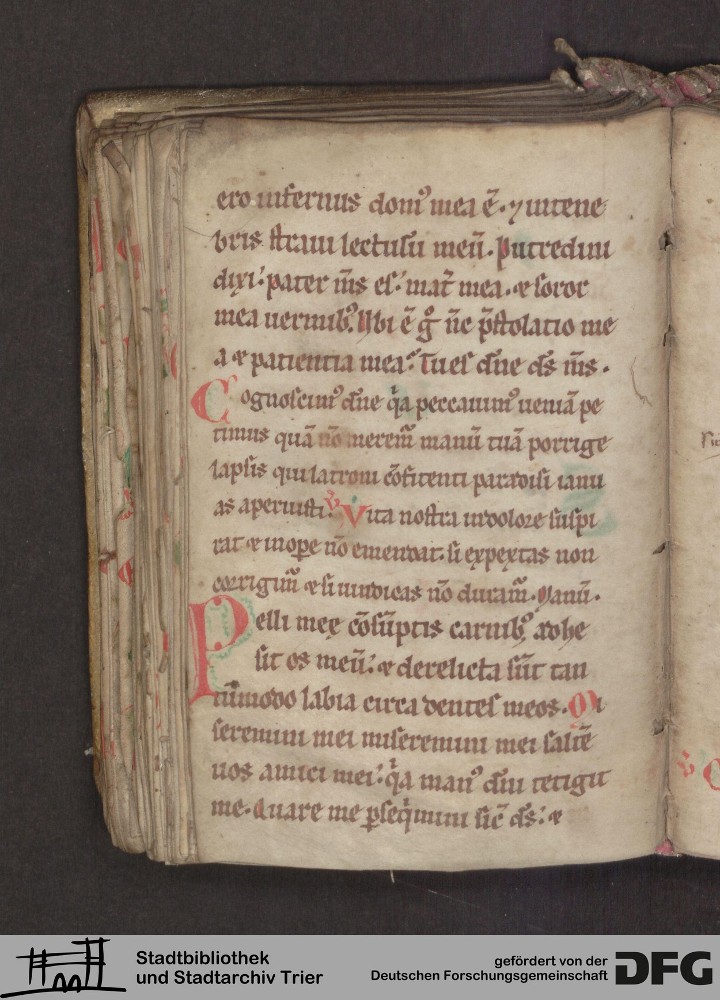 ero infernus dom᷒ mea ē· ⁊ in tene
bris straui lectulū meū· Putredini
dixi· pater m̄s es· mat̄ mea· ⁊ soror
mea uermib᷒ Vbi ē g̊ n̄c p̄stolatio me
a ⁊ patientia mea· Tu es dn̄e ds̄ m̄s·
Cognoscim᷒ dn̄e q̓a peccauim᷒ ueniā pe
timus quā nō merem̄ manū tuā porrige
lapsis qui latroni cōfitenti paradisi ianu
as aperuisti· V Vita nostra in dolore suspi
rat ⁊ in ope nō emendat· si expextas non
corrigim̄ ⁊ si uindicas nō duram̄· Manū·
Pelli meę cōsūptis carnib᷒ adhe
sit os meū· ⁊ derelicta sūt tan
tūmodo labia circa dentes meos· Mi
seremini mei miseremini mei saltē
uos amici mei· q̓a man᷒ dn̄i tetigit
me· Quare me ꝑseq̓mini sic̄ ds̄· ⁊
Stadtbibliothek
und Stadtarchiv Trier
gefördert von der
Deutschen Forschungsgemeinschaft
DFG